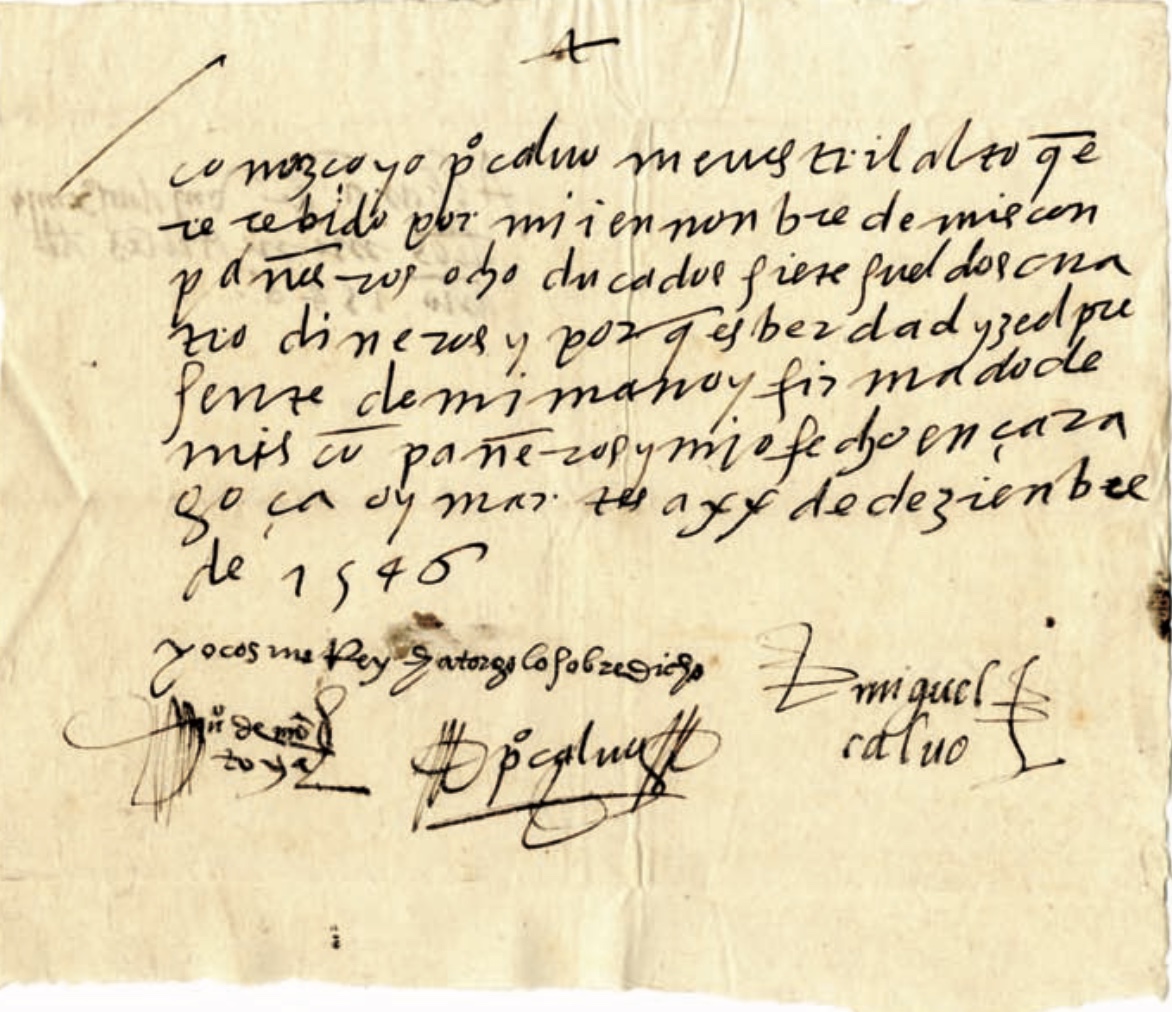 conozco yo pº caluo menestril alto q̄ e
rescebido por mi i en nonbre de mis con
pañeros ocho ducados siete sueldos cua
tro dineros y por q̄ es berdad yze el pre
sente de mi mano y firmado de
mis cō pañeros y mjo fecho en çara
goça oy martes a xx de dezienbre
de 1546
yo cosme Rey atorgo lo sobredicho
miguel
caluo
de mō
toya
pº caluo